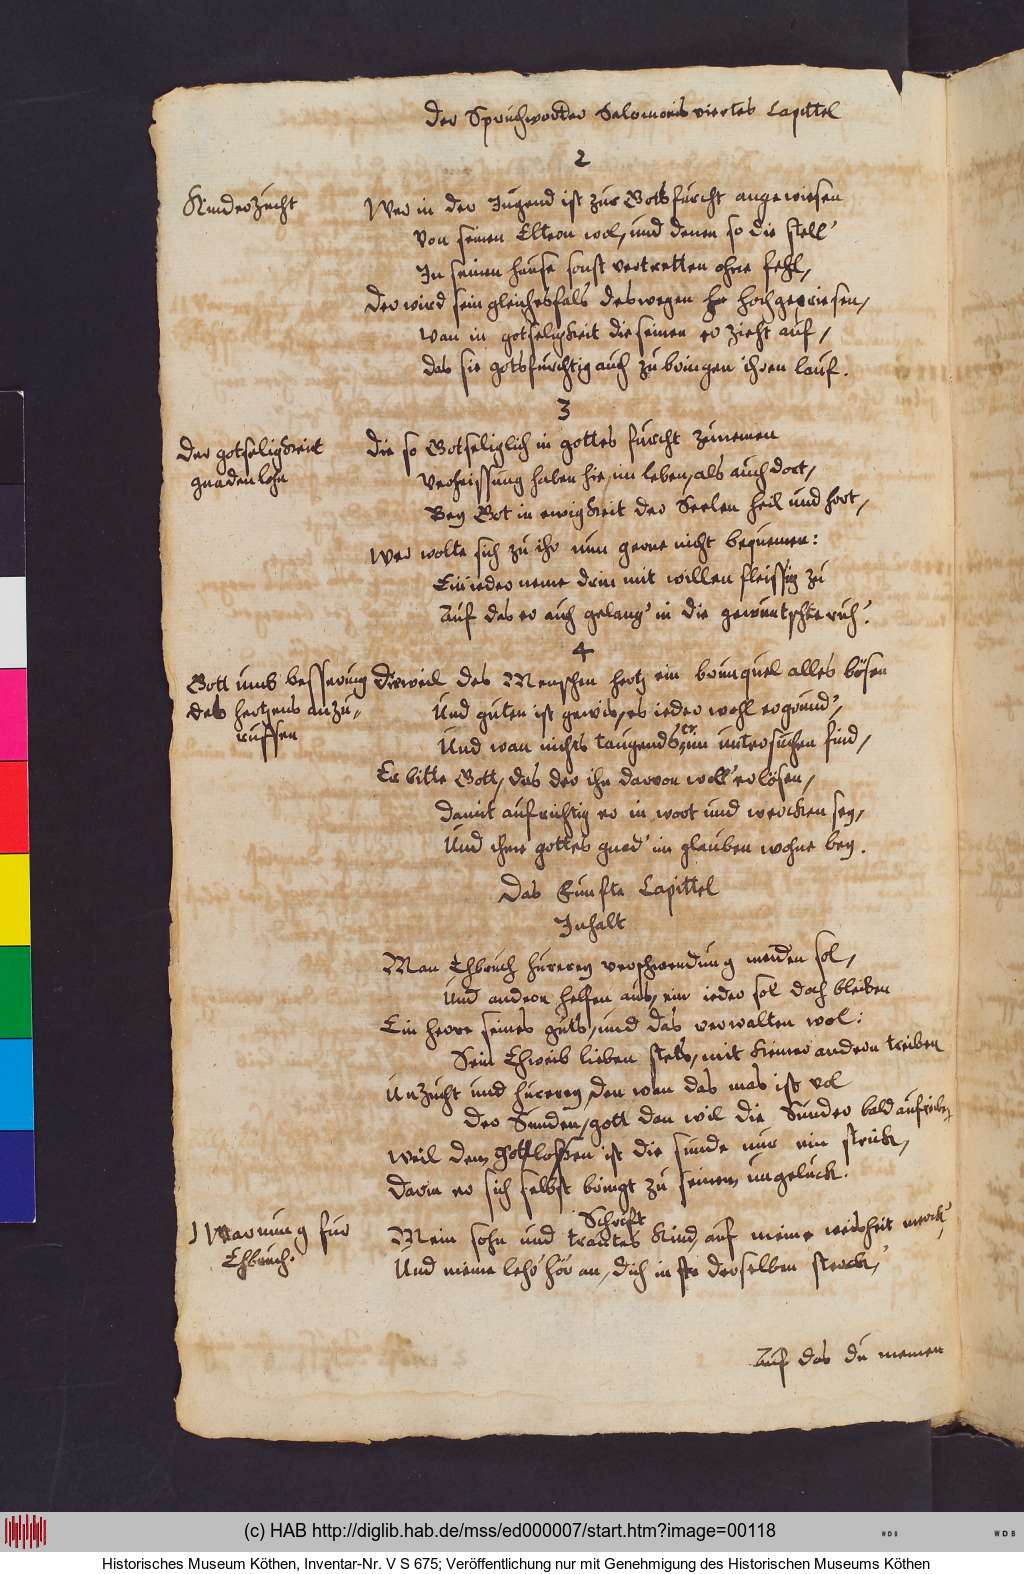 Der Spruchwörter Salomonis viertes Capittel
2
Kinderzucht
Wer in der Jugend ist zur Gotsfurcht angewiesen
Von seinen Eltern wol, und denen so die stell'
In seinem hause sonst vertretten ohne fehl,
Der wird sein gleichesfals deswegen hochgepriesen,
Wan in gotseligkeit die seinen er zieht auf,
das sie gotsfurchtig auch zubringen ihren lauf.
3
Der gotseligkeit
gnadenlohn
Die so Gotseliglich in gottes furcht zunemen
Verheissung haben hie, im leben, als auch dort,
Bey Got in ewigkeit der Seelen heil und hort,
Wer wolte sich zu ihr nun gerne nicht bequemen:
Ein ieder neme drin mit willen fleissig zu
Auf das er auch gelang' in die gewuntschte ruh'.
4
Gott umb besserung
des hertzens anzu-
ruffen
Dieweil des Menschen hertz ein brunquel alles bösen
Und guten ist gewis, es ieder wohl ergrund',
Und wan nichts taugends er im untersuchen find,
Er bitte Gott, das der ihn darvon woll' erlösen,
Damit aufrichtig er in wort und wercken sey,
Und ihme gottes gnad' im glauben wohne bey.
Das Funfte Capittel
Inhalt
Man Ehbruch hurerey verschwendung meiden sol,
Und andern helfen aus, ein ieder sol doch bleiben
Ein herre seines guts, und das verwalten wol:
Sein Ehweib lieben stets, mit keiner andern treiben
Unzucht und hurerey, den wan das mas ist vol
Der Sunden, gott dan wil die Sunder bald aufreiben,
Weil dem Gottlossen ist die sunde nur ein strick,
Darin er sich selbst bringt zu seinem ungeluck.
Schrift
Warnung fur
Ehbruch.
Mein sohn und trautes Kind, auf meine weisheit merck',
Und meine lehr' hör an, dich in derselben sterck',
Auf das du meinen
(c) HAB http://diglib.hab.de/mss/ed000007/start.htm?image=00118
Historisches Museum Köthen, Inventar-Nr. V S 675; Veröffentlichung nur mit Genehmigung des Historischen Museums Köthen